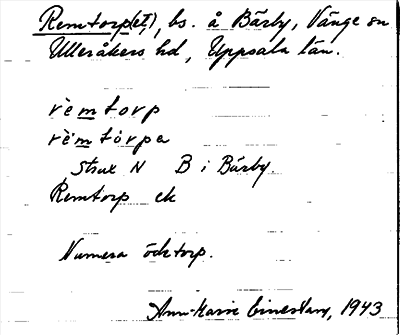 Remtorp(et), bs. å Bärby, Vänge sn
Ulleråkers hd, Uppsala län.
rèmtorp
rèmtórpa
Strax N B i Bärby.
Remtorp ek
Numera ödetorp.
Ann-Marie 1943